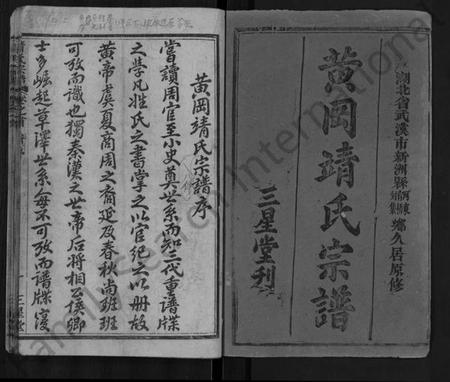 湖北省武漢市新洲縣
鄉久居原修
黃岡靖氏宗譜
三星堂刋
黃岡靖氏宗譜序
嘗讀周官至小史奠世系而知三代重譜牒
之學凡姓氏之書掌之以官紀之以册故
黃帝虞夏商周之裔延及春秋尚班班
可攷而識也獨秦漢之世帝后將相公侯卿
士多崛起草澤世系每不可攷而譜牒寖
三星堂
FamilySearch International